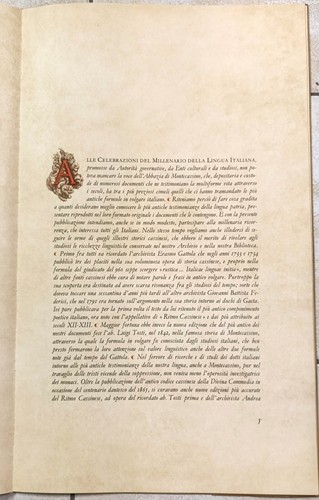 ALLE CELEBRAZIONI DEL MILLENARIO DELLA LINGUA ITALIANA,
promosse da Autorità governativa, da Enti culturali e da studiosi, non po-
teva mancare la voce dell'Abbazia di Montecassino, che, depositaria e custo-
de di numerosi documenti che ne testimoniano la multiforme vita attraverso
i secoli, ha tra i più preziosi cimeli quelli che ci hanno tramandato le più
antiche formule in volgare italiano. ¶ Riteniamo perciò di fare cosa gradita
a quanti desiderano meglio conoscere le più antiche testimonianze della lingua patria, pre-
sentare riprodotti nel loro formato originale i documenti che le contengono. E con la presente
pubblicazione intendiamo, anche se in modo modesto, partecipare alla millenaria ricor-
renza, che interessa tutti gli Italiani. Nello stesso tempo vogliamo anche illuderci di segui-
re le orme di quelli illustri storici cassinesi, che ebbero il merito di rivelare agli
studiosi le ricchezze linguistiche conservate nel nostro Archivio e nella nostra Biblioteca.
¶ Primo fra tutti va ricordato l'archivista Erasmo Gattola che negli anni 1733 e 1734
pubblicò tra dei placiti nella sua voluminosa opera di storia cassinese, e proprio nella
formula del giudicato del 960 seppe scorgere «rustica... Italicae linguae initia», mentre
di altre fonti cassinesi ebbe cura di notare parole e frasi in antico volgare. Purtroppo la
sua scoperta era destinata ad avere scarsa risonanza fra gli studiosi del tempo; sorte che
doveva toccare una sessantina d'anni più tardi all'altro archivista cassinese Giovanni Battista Fe-
derici, che nel 1791 era tornato sull'argomento nella sua storia intorno ai duchi di Gaeta.
Ivi pure pubblicava per la prima volta il testo da lui ritenuto il più antico componimento
poetico italiano, ora noto con l'appellativo di «Ritmo Cassinese» e dai più attribuito ai
secoli XII-XIII. ¶ Maggior fortuna ebbe invece la nuova edizione che del più antico dei
nostri documenti fece l'ab. Luigi Tosti, nel 1842, nella famosa storia di Montecassino,
attraverso la quale la formula in volgare fu conosciuta dagli studiosi italiani, che ben
presto fermarono la loro attenzione sul valore linguistico anche delle altre due formule
note già dal tempo del Gattola. ¶ Nel fervore di ricerche e di studi dei dotti italiani
intorno alle più antiche testimonianze della nostra lingua, anche a Montecassino, pur nel
travaglio delle tristi vicende della soppressione, non veniva meno l'operosità investigatrice
dei monaci. Oltre la pubblicazione dell'antico codice cassinese della Divina Commedia in
occasione del centenario dantesco del 1865, si curavano anche nuove edizioni più accurate
del Ritmo Cassinese, ad opera del ricordato ab. Tosti prima e dell'archivista Andrea